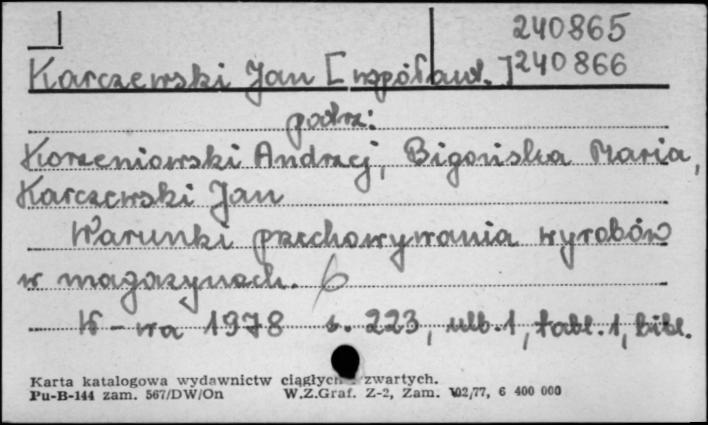 240865
Karczewski Jan [współaut.] 240866
podrz:
Korzeniowski Andrzej, Bigońska Maria,
Karczewski Jan
Warunki przechowywania wyrobów
w magazynach. 6
W-wa 1978 s. 223, nlb. 1, tabl. 1, bibl.
Karta katalogowa wydawnictw ciągłych zwartych.
Pu-B-144 zam. 567/DW/On W.Z.Graf. Z-2, Zam. 102/77, 6 400 000